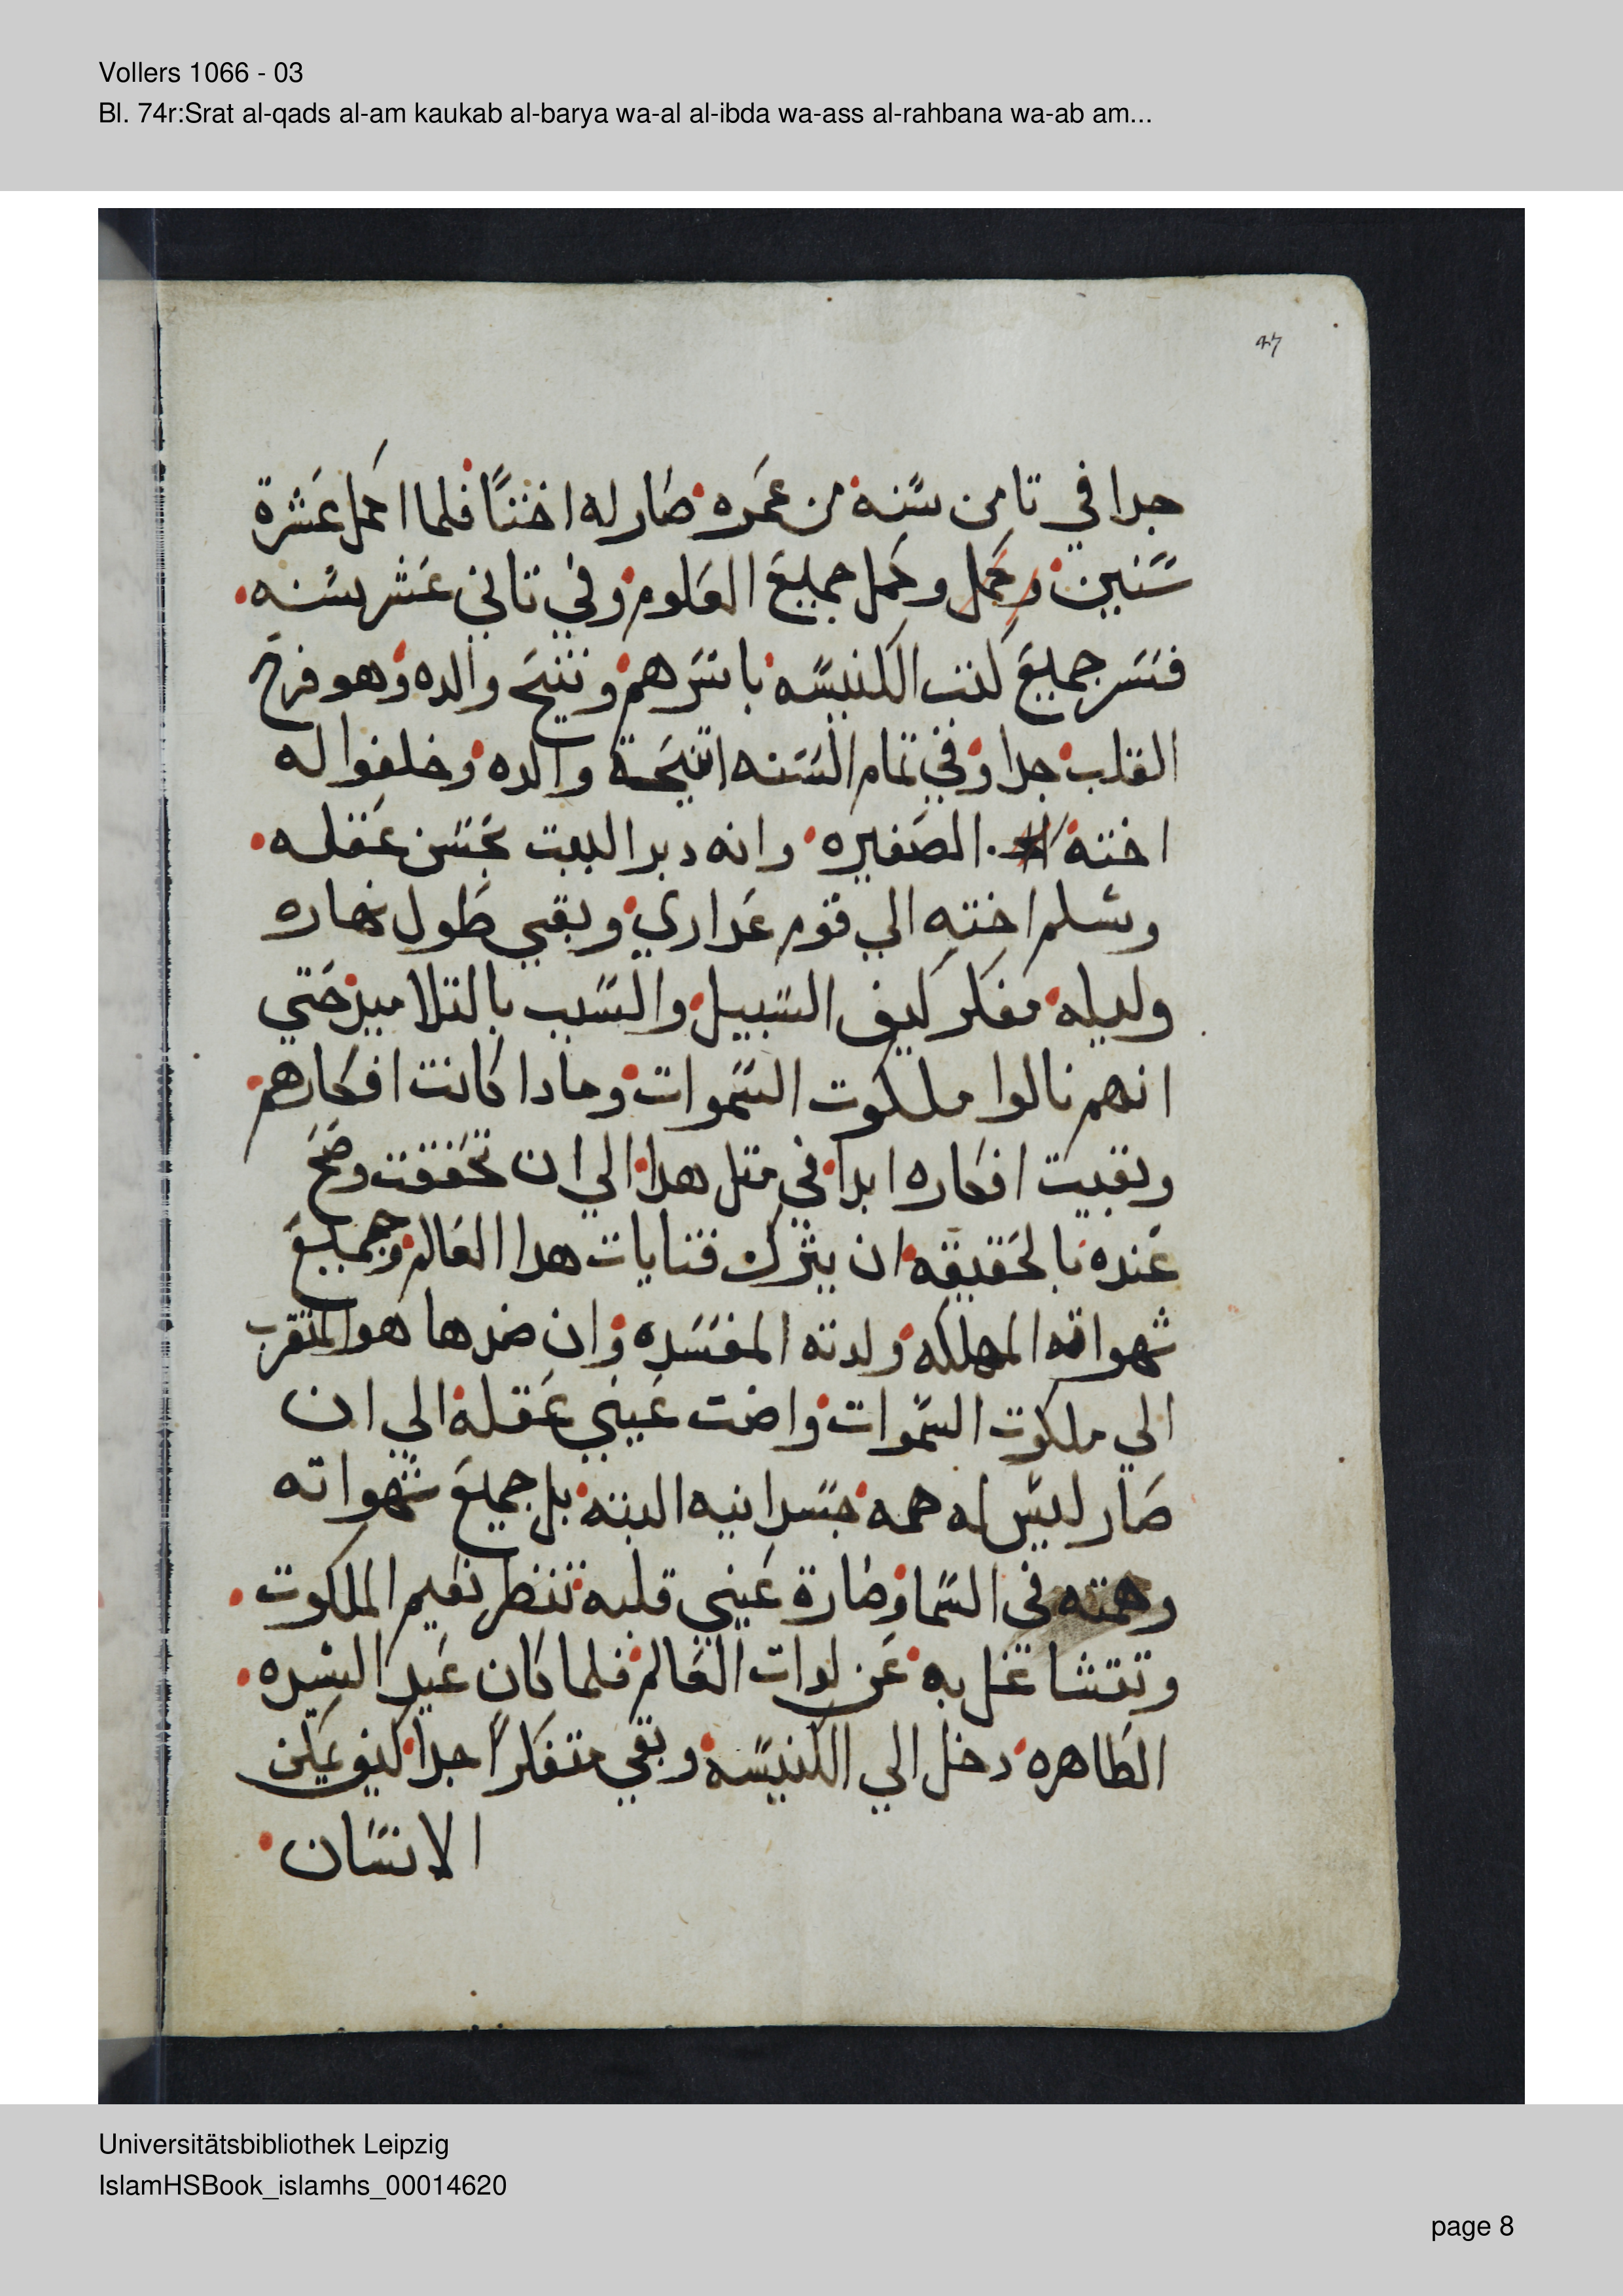 Vollers 1066 - 03
Bl. 74r:Srat al-qads al-am kaukab al-barya wa-al al-ibda wa-ass al-rahbana wa-ab am...
جدا في تامن سنه من عمره صار له اختا فلما اكمل عشرة
سنين وكمل وكمل جميع العلوم وفي تاني عشر سنه
فسر جميع كتب الكنيسه باسرهم وتنيح والده وهو فرح
القلب جدا وفي تمام السنه اتنيحة والده وخلفوا له
اخته الصغيره وانه دبر البيت بحسن عقله
وسلم اخته الي قوم عداري وبقي طول نهاره
وليله مفكر كيف السبيل والسبب بالتلاميذ حتي
انهم نالوا ملكوت السموات ومادا كانت افكارهم
وبقيت افكاره ابدا في متل هدا الي ان تحققت وصح
عنده بالحقيقه ان يترك قنايات هدا العالم وجميع
شهواته المهلكه ولدته المفسده وان ضدها هو المتقرب
الي ملكوت السموات واضت عيني عقلة الي ان
صار ليس له همه جسدانيه البته بل جميع شهواته
وهمته في السما وصارة عيني قلبه تنظر نعيم الملكوت
وتتشاغل به عن لدات العالم فلما كان عيد السيده
الطاهره دخل الي الكنيسه وبقي متفكرا جدا كيف يمكن
الانسان
Universitätsbibliothek Leipzig
IslamHSBook_islamhs_00014620
page 8